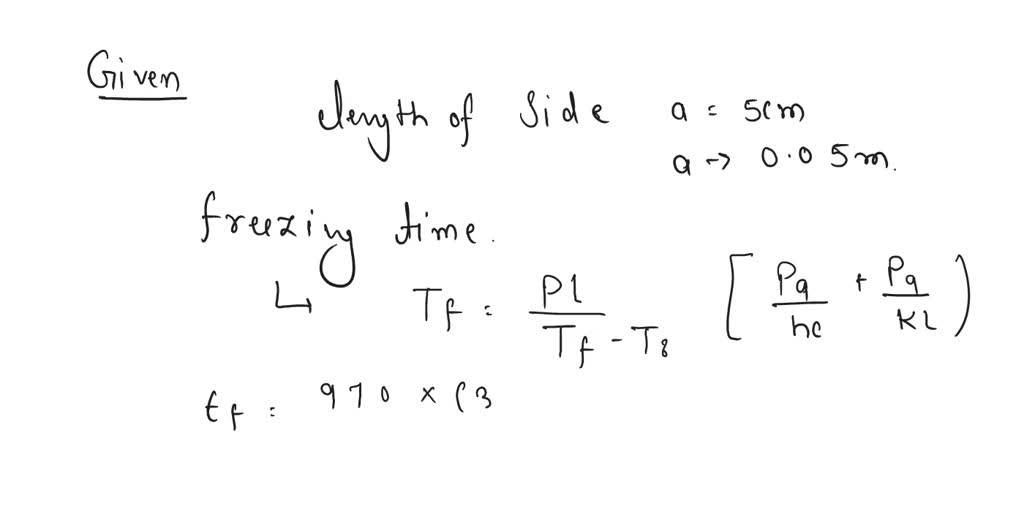 Given
length of Side a = 5cm
a → 0.05m.
freezing time.
↳ Tf = Pl / Tf - T8 [ Pa / hc + Pa / KL )
tf = 970 × (3